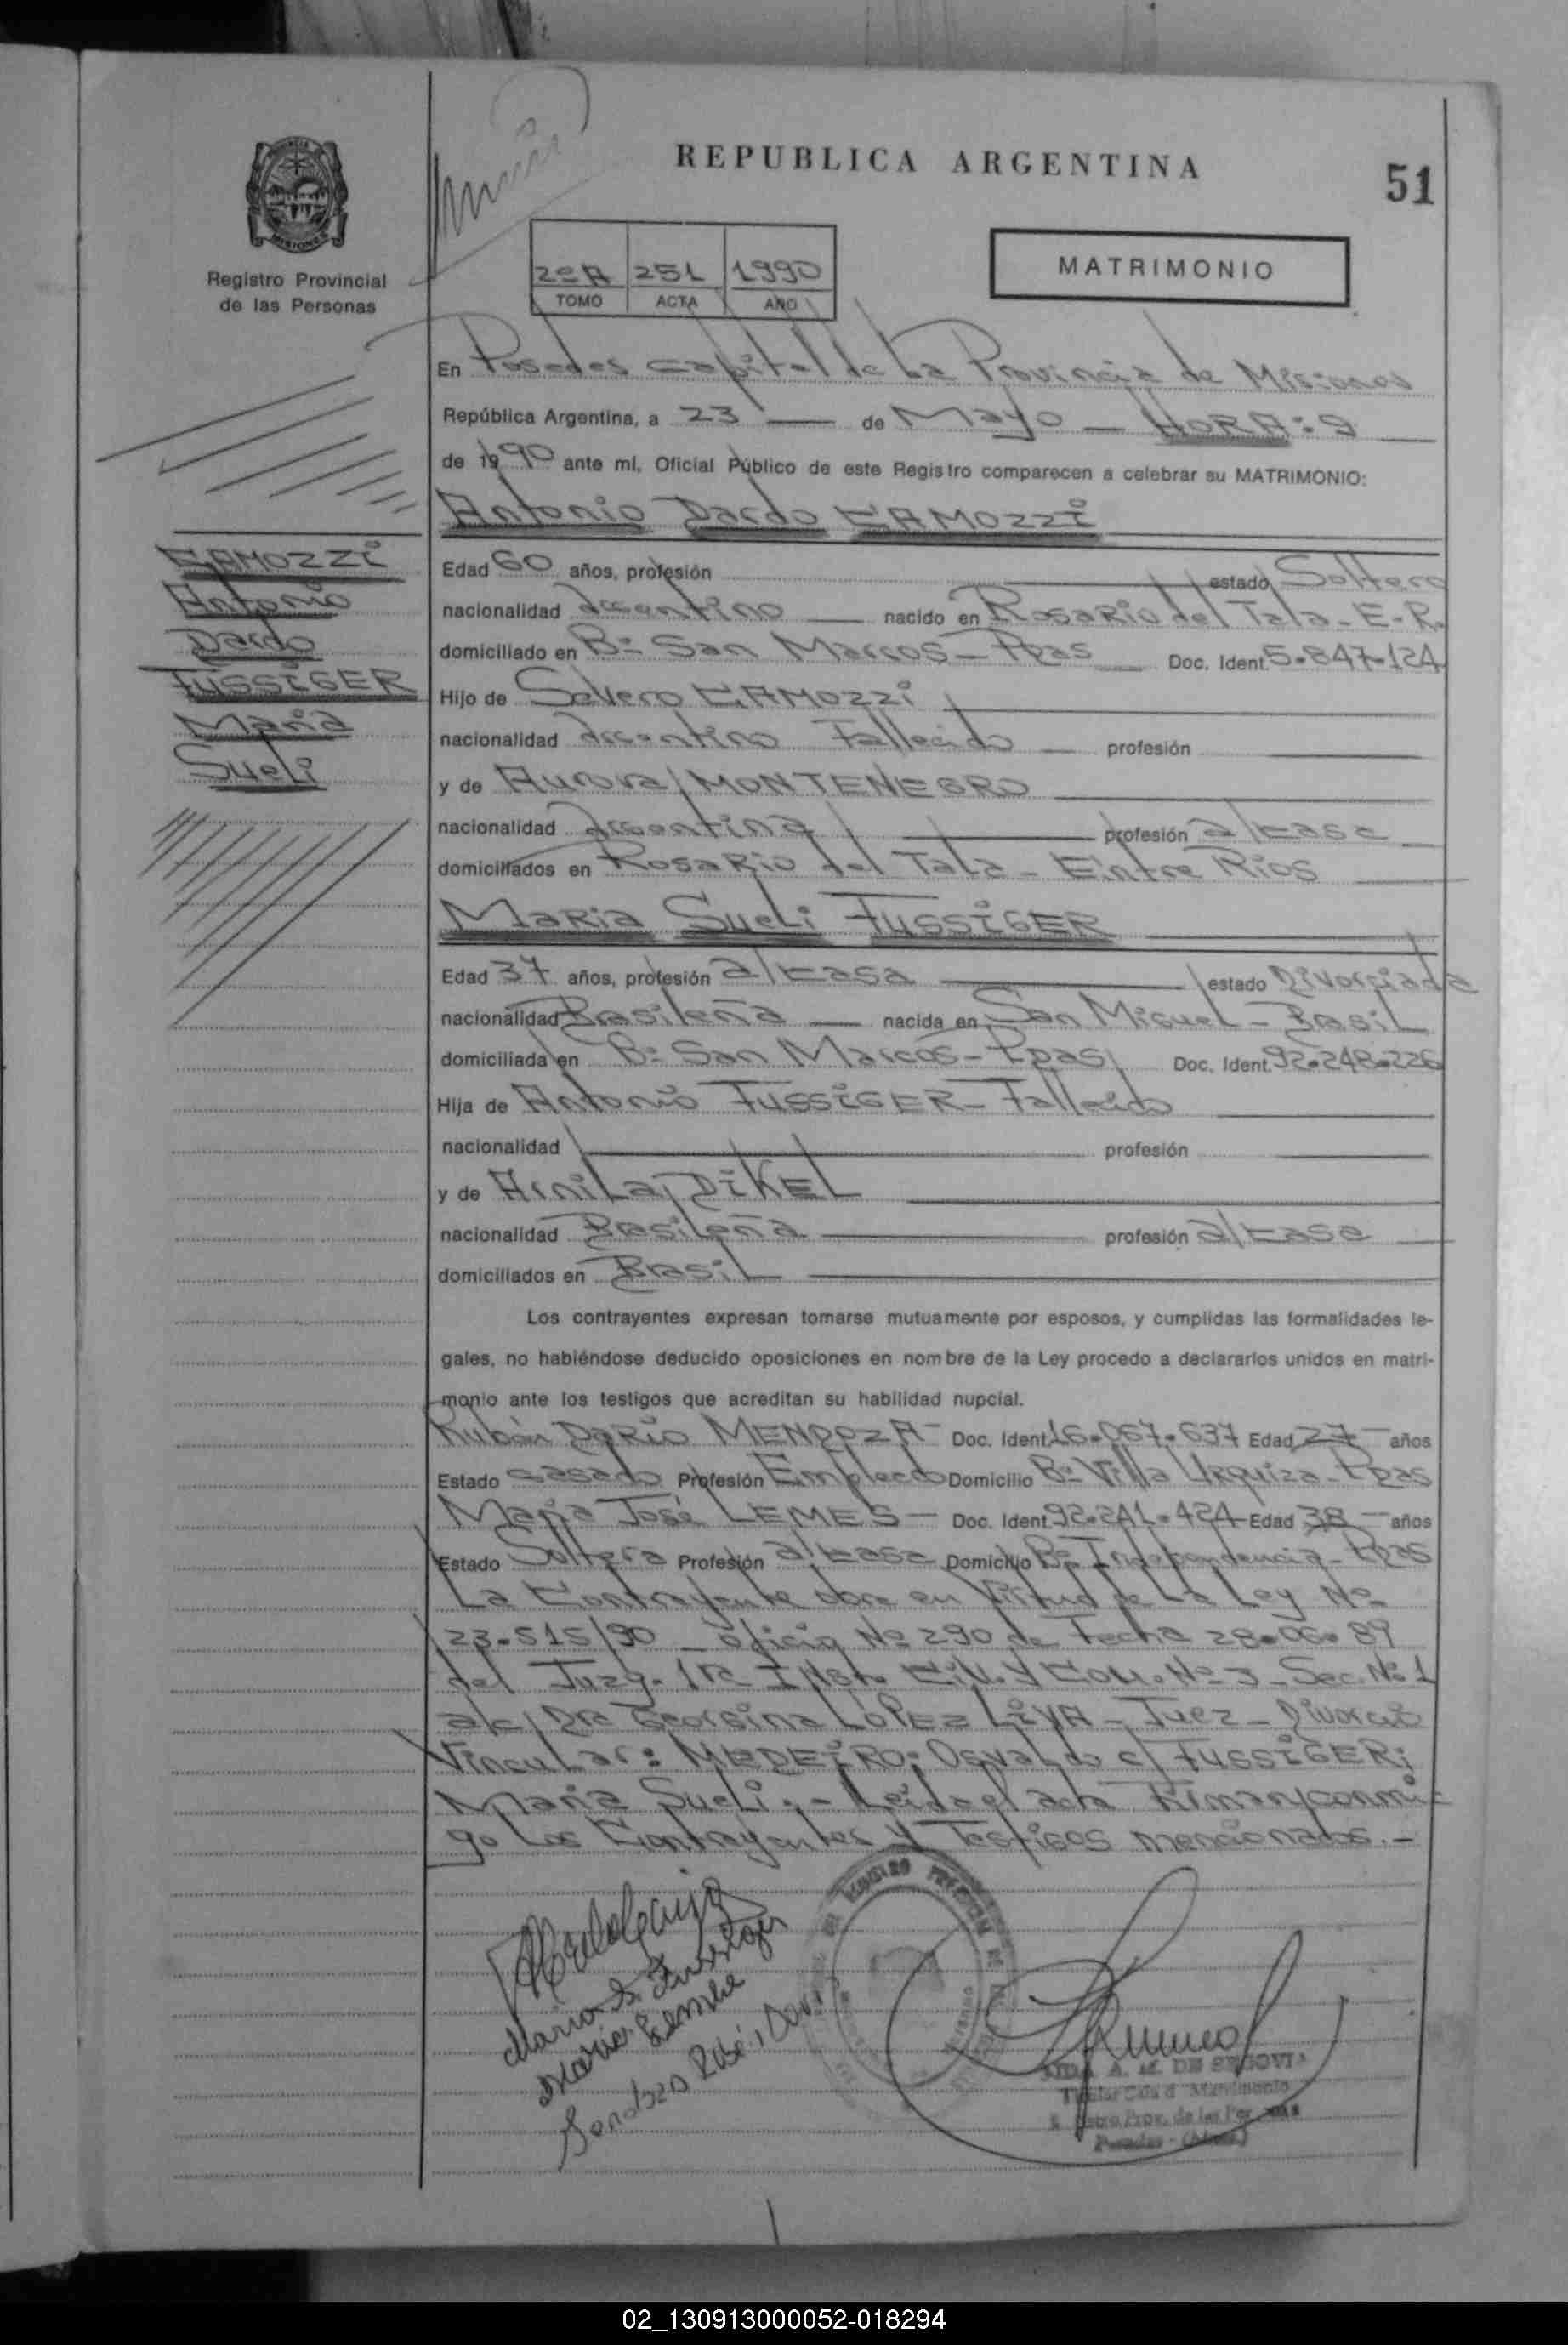 REPUBLICA ARGENTINA
51
MISIONES
Registro Provincial
de las Personas
2º A 251 1990
TOMO ACTA AÑO
MATRIMONIO
En Posadas capital de La Provincia de Misiones
República Argentina, a 23 de Mayo - HORA: 9
de 1990 ante mí, Oficial Público de este Registro comparecen a celebrar su MATRIMONIO:
Antonio Dardo CAMOZZI
CAMOZZI
Antonio
Dardo
FUSSIGER
Maria
Sueli
Edad 60 años, profesión estado Soltero
nacionalidad Argentino nacido en Rosario del Tala - E.R.
domiciliado en Bº San Marcos - Ppas Doc. Ident. 5.847.124
Hijo de Severo CAMOZZI
nacionalidad Argentino Fallecido profesión
y de Aurora MONTENEGRO
nacionalidad Argentina profesión a/casa
domiciliados en Rosario del Tala - Entre Rios
Maria Sueli FUSSIGER
Edad 37 años, profesión a/casa estado Divorciada
nacionalidad Brasileña nacida en San Miguel - Brasil
domiciliada en Bº San Marcos - Ppas Doc. Ident. 92.248.226
Hija de Antonio FUSSIGER - Fallecido
nacionalidad profesión
y de Arnila DIKEL
nacionalidad Brasileña profesión a/casa
domiciliados en Brasil
Los contrayentes expresan tomarse mutuamente por esposos, y cumplidas las formalidades le-
gales, no habiéndose deducido oposiciones en nombre de la Ley procedo a declararlos unidos en matri-
monio ante los testigos que acreditan su habilidad nupcial.
Rubén Darío MENDOZA - Doc. Ident. 16.067.637 Edad 27 años
Estado casado Profesión Empleado Domicilio Bº Villa Urquiza - Ppas
Maria José LEMES - Doc. Ident. 92.241.424 Edad 38 años
Estado Soltera Profesión a/casa Domicilio Bº Independencia - Ppas
La Contrayente obra en Virtud de La Ley Nº
23.515/90 - oficio Nº 290 de Fecha 28.06.89
del Juzg. 1ra Inst. Civ. y Com. Nº 3 - Sec. Nº 1
a/c Dra Georgina LÓPEZ LIVA - Juez - Divorcio
Vincular: MEDEIRO; Osvaldo c/ FUSSIGER;
Maria Sueli.- Leida el acta Firman conmi
go Los Contrayentes y Testigos mencionados.-
Maria S. Fussiger
A. M. DE SEGOVIA
02_130913000052-018294